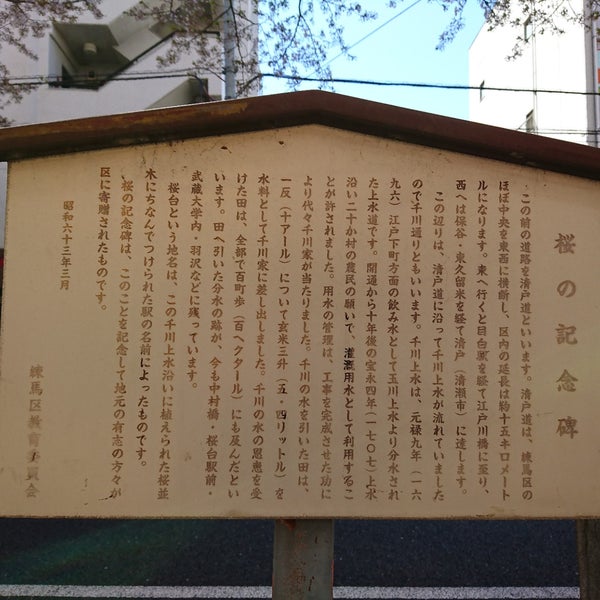 桜の記念碑
この前の道路を清戸道といいます。清戸道は、練馬区の
ほぼ中央を東西に横断し、区内の延長は約十五キロメート
ルになります。東へ行くと目白駅を経て江戸川橋に至り、
西へは保谷・東久留米を経て清戸（清瀬市）に達します。
この辺りは、清戸道に沿って千川上水が流れていました
ので千川通りともいいます。千川上水は、元禄九年（一六
九六）江戸下町方面の飲み水として玉川上水より分水され
た上水道です。開通から十年後の宝永四年（一七〇七）上水
沿い二十か村の農民の願いで、灌漑用水として利用するこ
とが許されました。用水の管理は、工事を完成させた功に
より代々千川家が当たりました。千川の水を引いた田は、
一反（十アール）について玄米三升（五・四リットル）を
水料として千川家に差し出しました。千川の水の恩恵を受
けた田は、全部で百町歩（百ヘクタール）にも及んだとい
います。田へ引いた分水の跡が、今も中村橋・桜台駅前・
武蔵大学内・羽沢などに残っています。
桜台という地名は、この千川上水沿いに植えられた桜並
木にちなんでつけられた駅の名前によったものです。
桜の記念碑は、このことを記念して地元の有志の方々が
区に寄贈されたものです。
昭和六十三年三月
練馬区教育委員会